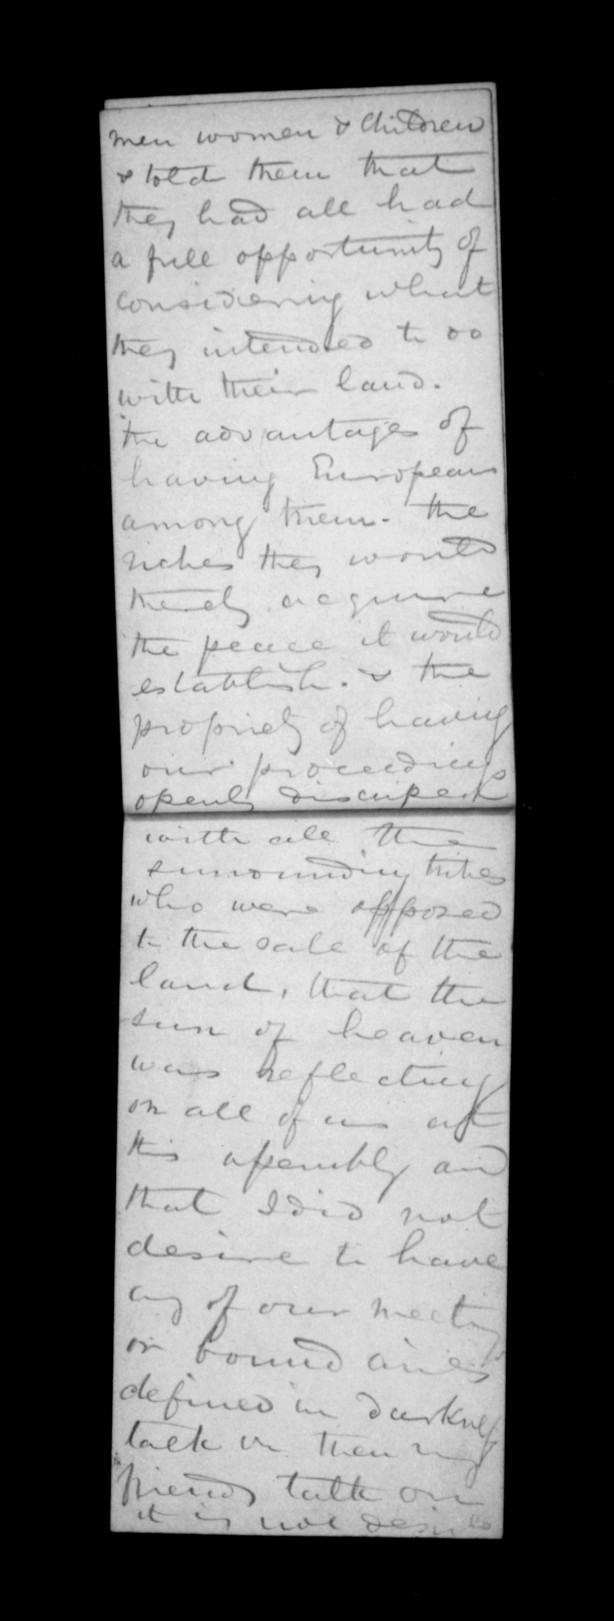 men women & children
& told them that
they had all had
a full opportunity of
considering what
they intended to do
with their land.
the advantages of
having Europeans
among them. the
riches they would
thereby acquire
the peace it would
establish. & the
propriety of having
our proceedings
openly discussed
with all the
surrounding tribes
who were opposed
to the sale of the
land, that the
sun of heaven
was reflecting
on all of us at
this assembly and
that I did not
desire to have
any of our meetings
or boundaries
defined in darkness
talk on then my
friends talk on
it is not desired